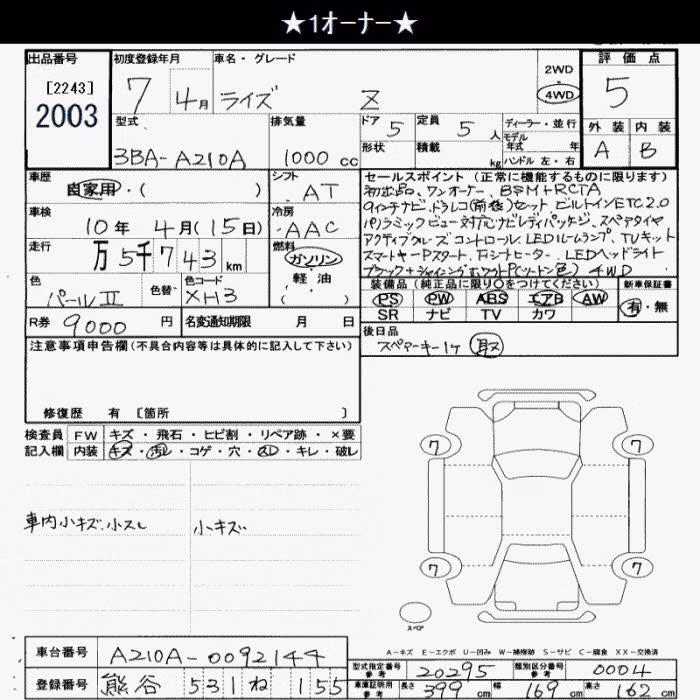 ★1ｵｰﾅｰ★
出品番号 初度登録年月 車名・グレード 評価点
[2243]
2003
7 4月 ライズ Z 2WD 4WD 5
型式 排気量 ドア 5 定員 5人 ディーラー・並行 外装 内装
モデル年式 年
3BA-A210A 1000cc 形状 積載 kg ハンドル 左・右 A B
車歴 シフト セールスポイント(正常に機能するものに限ります)
自家用・( ) AT 初出品、ワンオーナー、BSM+RCTA
車検 冷房 9インチナビ、ドラレコ(前後)セット ビルトインETC2.0
10年 4月(15日) AAC パノラミックビュー対応ナビレディパッケージ、スペアタイヤ
走行 燃料 アクティブクルーズコントロール、LEDルームランプ、TVキット
万5千743km ガソリン スマートキーPスタート、シートヒーター、LEDヘッドライト
軽油 4WD
色 色替 色コード 装備品(純正品に限り○をつけてください) 新車保証書
パールII XH3 PS PW ABS エアB AW 有・無
SR ナビ TV カワ
R券 9000円 名変通知期限 月 日 後日品
スペアーキー1ケ
注意事項申告欄(不具合内容等は具体的に記入して下さい)
修復歴 有 〔箇所 〕
検査員 FW キズ・飛石・ヒビ割・リペア跡・×要
記入欄 内装 キズ・汚レ・コゲ・穴・スレ・キレ・破レ
車内小キズ、小スレ 小キズ
7 7
7 7
スペア
A-キズ E-エクボ U-凹み W-補修跡 S-サビ C-腐食 XX-交換済
車台番号 A210A-0092144 型式指定番号 参考 20295 類別区分番号 参考 0004
登録番号 熊谷 531 ね 155 車庫証明用 参考 長さ 399cm 幅 169cm 高さ 162cm